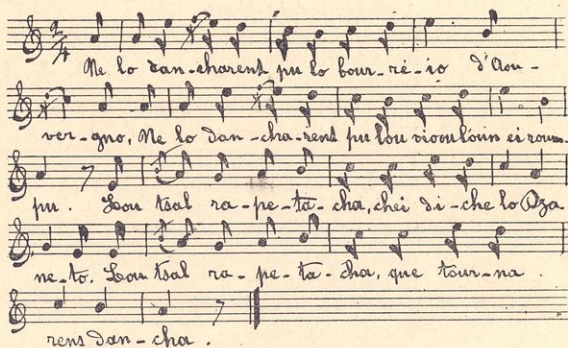 Ne lo dan-charent pu lo bour-rè-io d'Aou-
ver-gno, Ne lo dan-cha-rent pu lou viooulóun ei roum-
pu. Lou tsal ra-pe-ta-cha, chei di-che lo Dza
ne-to. Lou tsal ra-pe-ta-cha, que tour-na.
rens dan-cha.